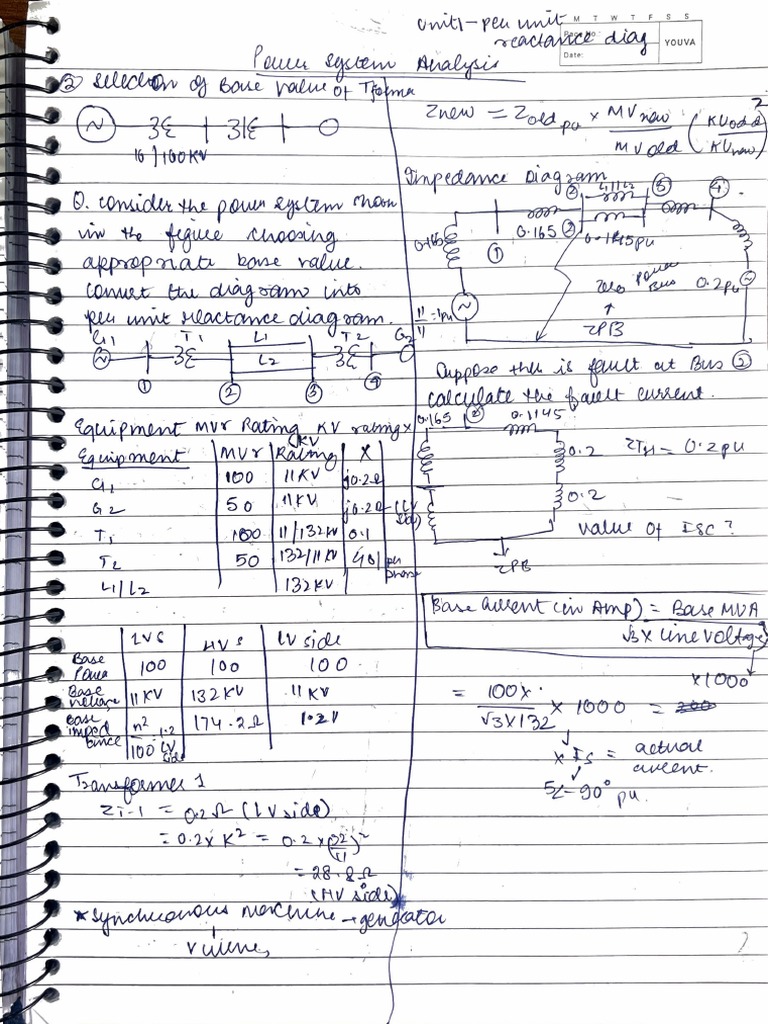 unit1-per unit
reactance diag
M T W T F S S
Page No.:
Date:
YOUVA
Power System Analysis
② Selection of Base value of Tforma
~
10/100KV
Q. consider the power system shown
in the figure choosing
appropriate base value.
convert the diagram into
per unit reactance diagram.
G1 T1 L1 T2 G2
L2
① ② ③ ④
Equipment MVr Rating KV rating x
Equipment | MVr | KV Rating | X
G1 100 11KV j0.2Ω
G2 50 11KV j0.2Ω - (LV side)
T1 100 11/132KV 0.1
T2 50 132/11KV per phase
L1/L2 132KV
LVS | HVS | LV side
Base Power 100 100 100
Base voltage 11KV 132KV 11KV
Base impedance 11²/100 = 1.2 LV side 174.2Ω 1.2
Transformer 1
ZT-1 = 0.2Ω (LV side)
= 0.2 x K² = 0.2 x (132/11)²
= 28.8Ω
(HV side)
* Synchronous machine → generator
Znew = Zold pu x MVnew/MVold (KVold/KVnew)²
Impedance Diagram
② L1/L2 ③ ④
0.165 0.165 ② 0.1145pu
①
11/11 = 1pu
zero Power Bus
0.2pu
ZPB
Suppose this is fault at Bus ②
calculate the fault current.
0.165 ② 0.1145
0.2 ZTH = 0.2pu
0.2
value of Isc?
ZPB
Base current (in Amp) = Base MVA
√3 x line voltage
x1000
= 100x / √3 x 132 x 1000 =
x Is = actual
current.
5∠-90° pu.